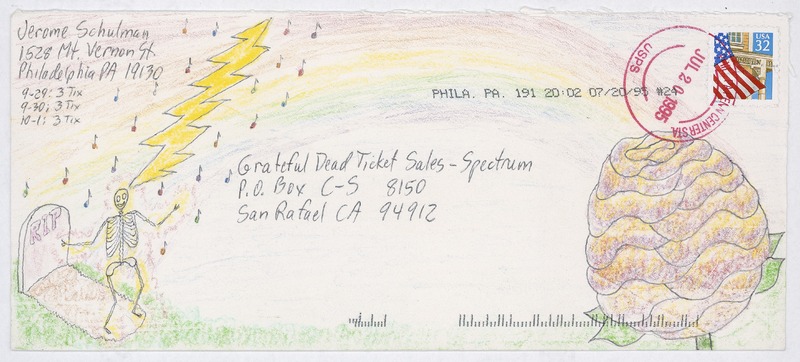 Jerome Schulman
1528 Mt. Vernon St.
Philadelphia PA 19130
9-29: 3 Tix
9-30: 3 Tix
10-1: 3 Tix
USA
32
USPS
JUL 20 1995
PHILA. PA. 191 20:02 07/20/95 #24
Grateful Dead Ticket Sales - Spectrum
P.O. Box C-S 8150
San Rafael CA 94912
RIP